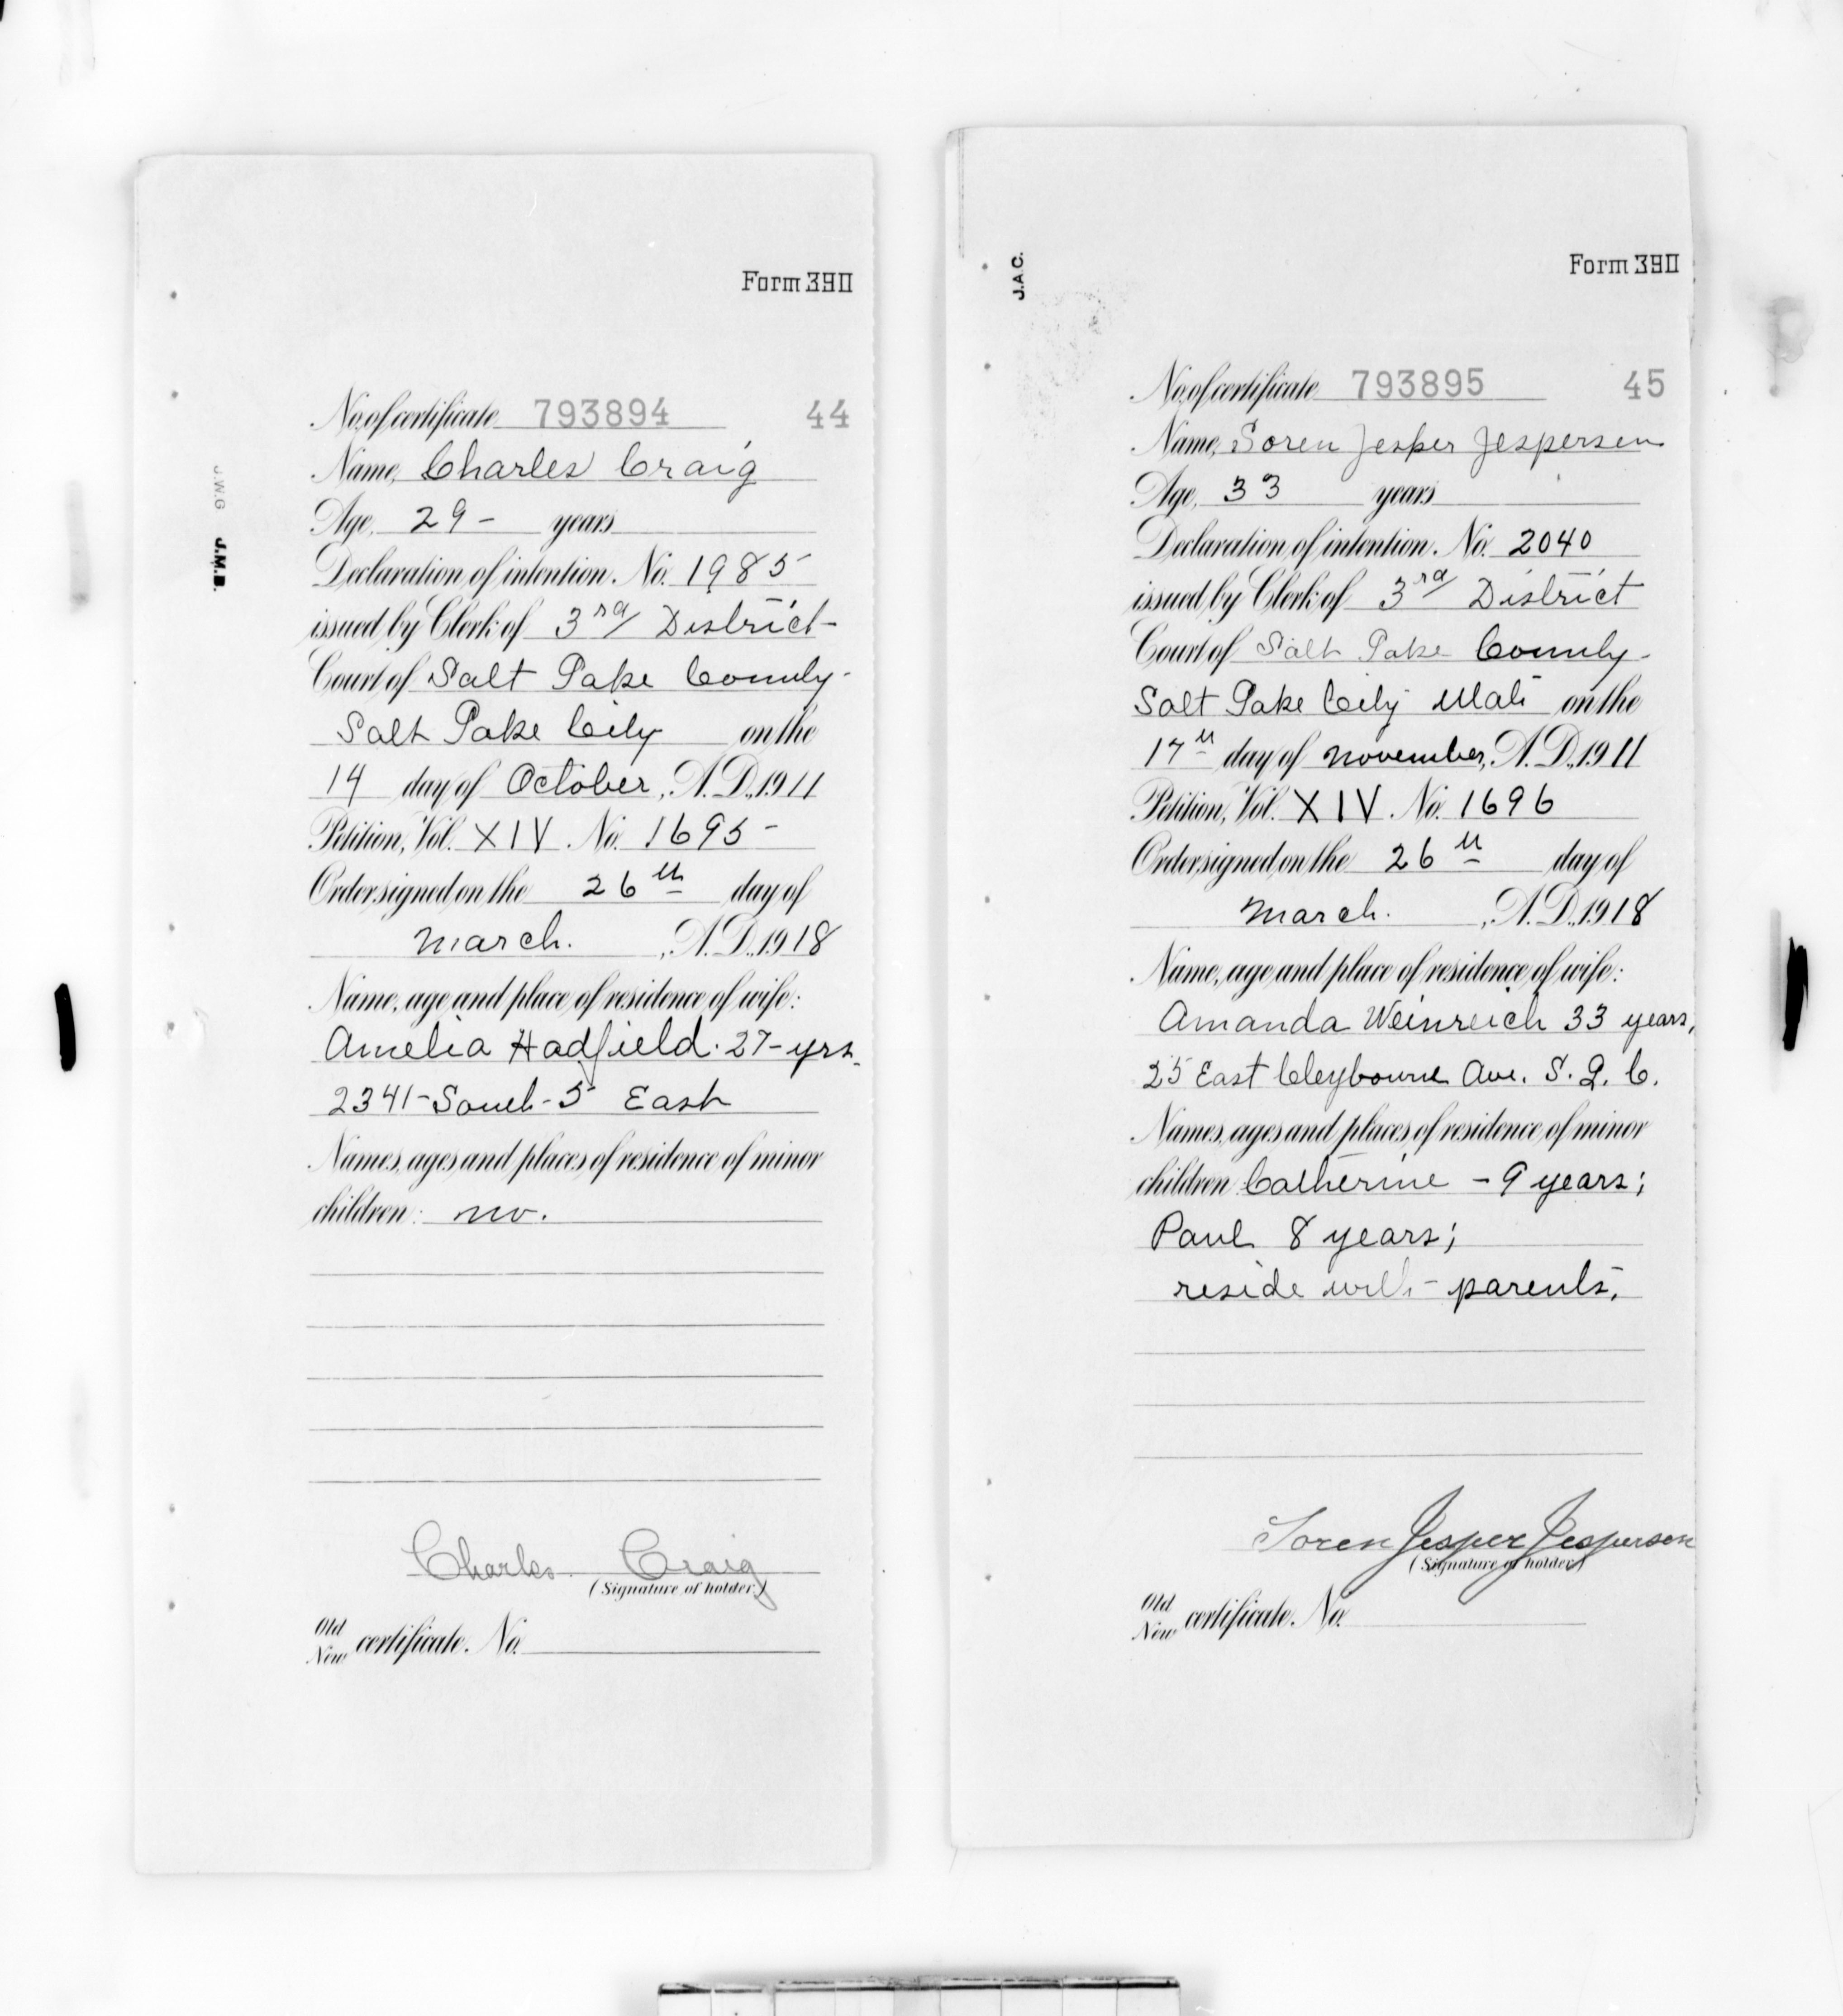 Form 390
No. of certificate 793894 44
Name, Charles Craig
Age, 29 - years
Declaration of intention. No. 1985
issued by Clerk of 3rd District
Court of Salt Lake County
Salt Lake City on the
14 day of October, A.D., 1911
Petition, Vol. XIV. No. 1695
Order signed on the 26th day of
March. , A.D., 1918
Name, age and place of residence of wife:
Amelia Hadfield. 27-yrs.
2341-South-5 East
Names, ages and places of residence of minor
children: no.
Charles Craig
(Signature of holder)
Old
New certificate. No.
J.W.G J.M.B.
Form 390
J.A.C.
No. of certificate 793895 45
Name, Soren Jesper Jespersen
Age, 33 years
Declaration of intention. No. 2040
issued by Clerk of 3rd District
Court of Salt Lake County
Salt Lake City Utah on the
17th day of November, A.D., 1911
Petition, Vol. XIV. No. 1696
Order signed on the 26th day of
March. , A.D., 1918
Name, age and place of residence of wife:
Amanda Weinreich 33 years,
25 East Cleybourne Ave. S. L. C.
Names, ages and places of residence of minor
children Catherine - 9 years;
Paul 8 years;
reside with parents.
Soren Jesper Jespersen
(Signature of holder)
Old
New certificate. No.